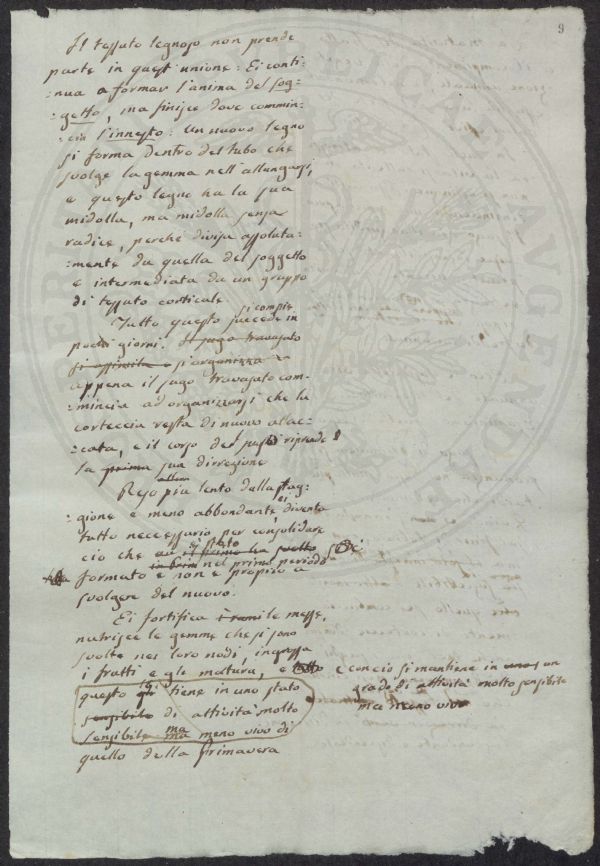 9
Il tessuto legnoso non prende
parte in quest'unione: Ei conti-
nua a formar l'anima del sog-
:getto, ma finisce dove commin-
:cia l'innesto: Un nuovo legno
si forma dentro del tubo che
svolge la gemma nell'allungarsi,
e questo legno ha la sua
midolla, ma midolla senza
radice, perché divisa assoluta-
:mente da quella del soggetto
e intermediata da un gruppo
di tessuto corticale
si compie
Tutto questo succede in
pochi giorni. il sugo travajato
si assimila e s'organizza
appena il sugo travajato com-
:mincia ad organizzarsi che la
corteccia resta di nuovo attac-
:cata, e il corso del riprende
la prima sua dirrezione
allora
Reso più lento dalla stag-
:gione e meno abbondante ei diventa
tutto necessario per consolidare
ciò che è stato il primo ha svolto
nel primo periodo
formato e non è proprio a
svolgere del nuovo.
Ei fortifica i rami le messe,
nutrisce le gemme che si sono
svolte nei loro nodi, ingrossa
i frutti e gli matura, e tutto e con ciò si mantiene in uno un
questo tiene in uno stato grado di attività molto sensibile
sensibile di attività molto ma meno vivo
sensibile ma meno vivo di
quello della primavera